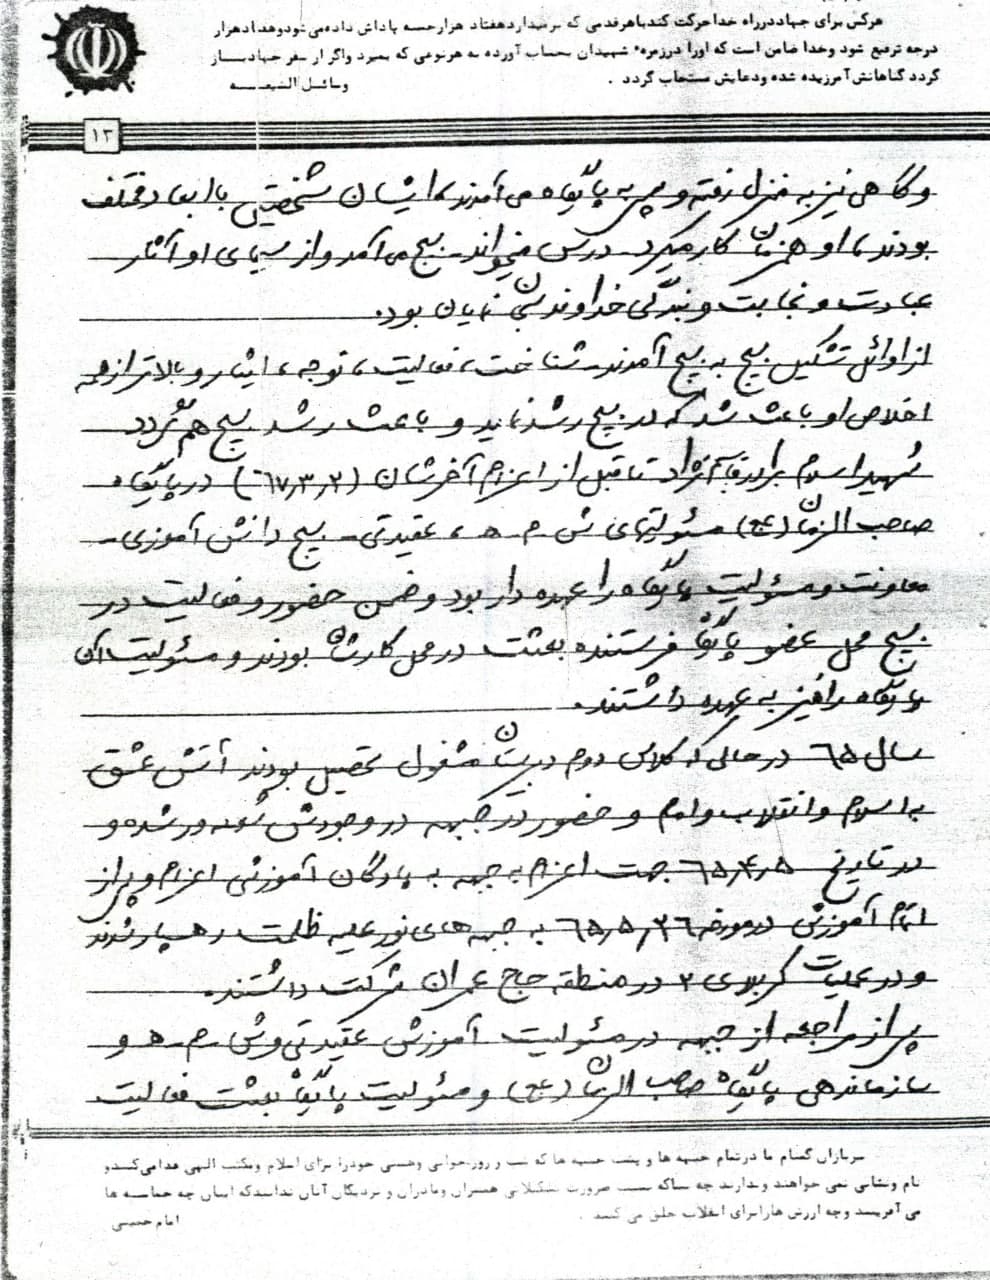 هرکس برای جهاد در راه خدا حرکت کند با هر قدمی که برمیدارد هفتاد هزار حسنه پاداش داده می شود و هفتاد هزار
درجه ترفیع شود و خدا ضامن است که او را در زمره شهیدان بحساب آورده به هر نوعی که بمیرد و اگر از سفر جهاد باز
گردد گناهانش آمرزیده شده و دعایش مستجاب گردد .
وسائل الشیعه
۱۳
و گاهی نیز به منزل رفته و پس به پایگاه می آمدند، ایشان شخصیتی با ابعاد مختلف
بودند، او همزمان کار میکرد - درس میخواند - بسیج می آمد و از سیمای او آثار
عبادت و نجابت و بندگی خداوند نمایان بود.
از اوائل تشکیل بسیج به بسیج آمدند - شناخت، فعالیت، توجه، ایثار و بالاتر از همه
اخلاص او باعث شد که در بسیج رشد نماید و باعث رشد بسیج هم گردد
شهید اسلام برادر تا قبل از اعزام آخرشان (۶۷،۳،۲) در پایگاه
صاحب الزمان (عج) مسئولیتهای ش - م - ه ، عقیدتی - بسیج دانش آموزی -
معاونت و مسئولیت پایگاه را عهده دار بود و ضمن حضور و فعالیت در
بسیج محل عضو پایگاه فرستنده بعثت در محل کارشان بودند و مسئولیت آن
پایگاه را نیز به عهده داشتند.
سال ۶۵ در حالی که کلاس دوم دبیرستان مشغول تحصیل بودند آتش عشق
به اسلام و انقلاب و امام و حضور در جبهه در وجودش شعله ور شده و
در تاریخ ۶۵،۴،۵ جهت اعزام به جبهه به پادگان آموزشی اعزام و پس از
اتمام آموزش در مورخه ۶۵،۵،۲۶ به جبهه های نور علیه ظلمت رهسپار شدند
و در عملیات کربلای ۲ در منطقه حاج عمران شرکت داشتند.
پس از مراجعه از جبهه در مسئولیت آموزش عقیدتی و ش - م - ه و
سازماندهی پایگاه صاحب الزمان (عج) و مسئولیت پایگاه بعثت فعالیت
سربازان گمنام ما در تمام جبهه ها و پشت جبهه ها که شب و روز جوانی و هستی خود را برای اسلام و مکتب الهی فدا می کنند و
نام و نشانی نمی خواهند و ندارند چه بسا که بسبب ضرورت تشکیلاتی همسران و مادران و نزدیکان آنان ندانند که اینان چه حماسه ها
می آفرینند و چه ارزش ها را برای انقلاب خلق می کنند .
امام خمینی